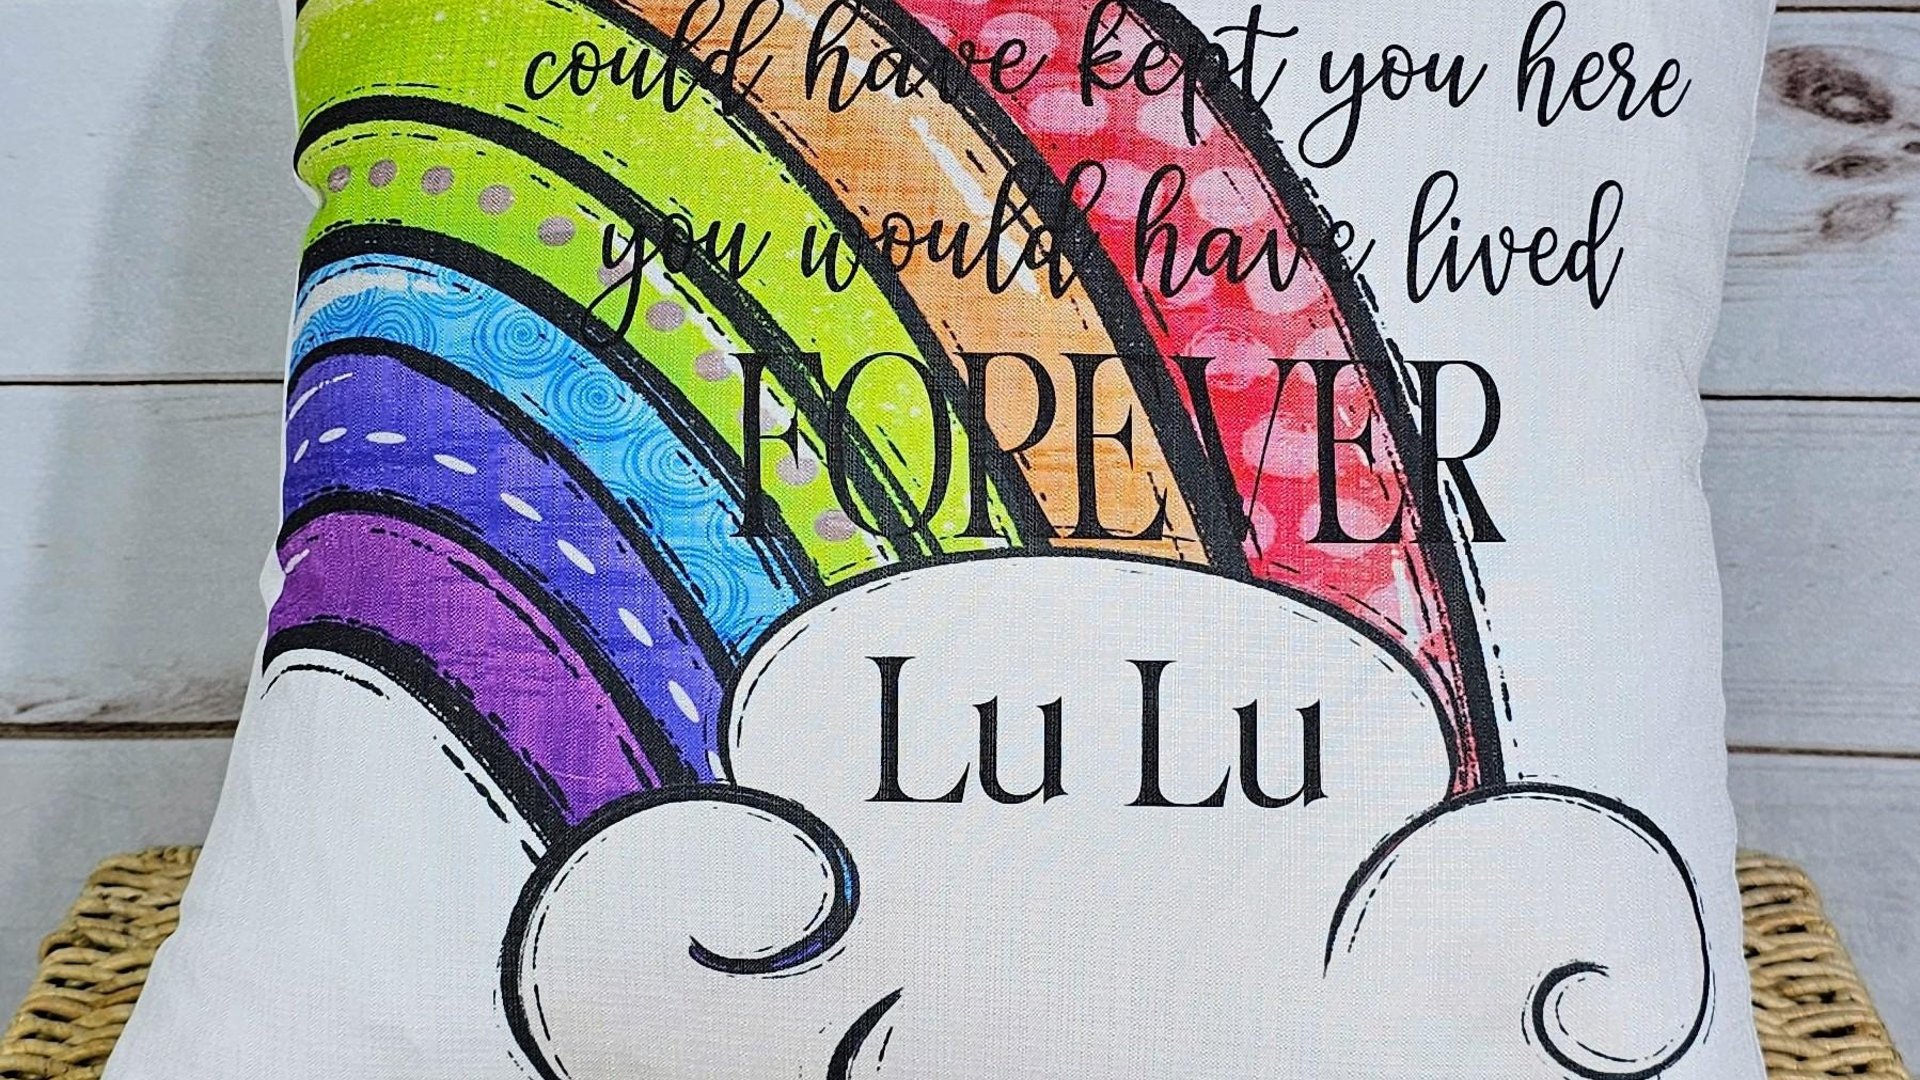 could have kept you here
you would have lived
FOREVER
Lu Lu